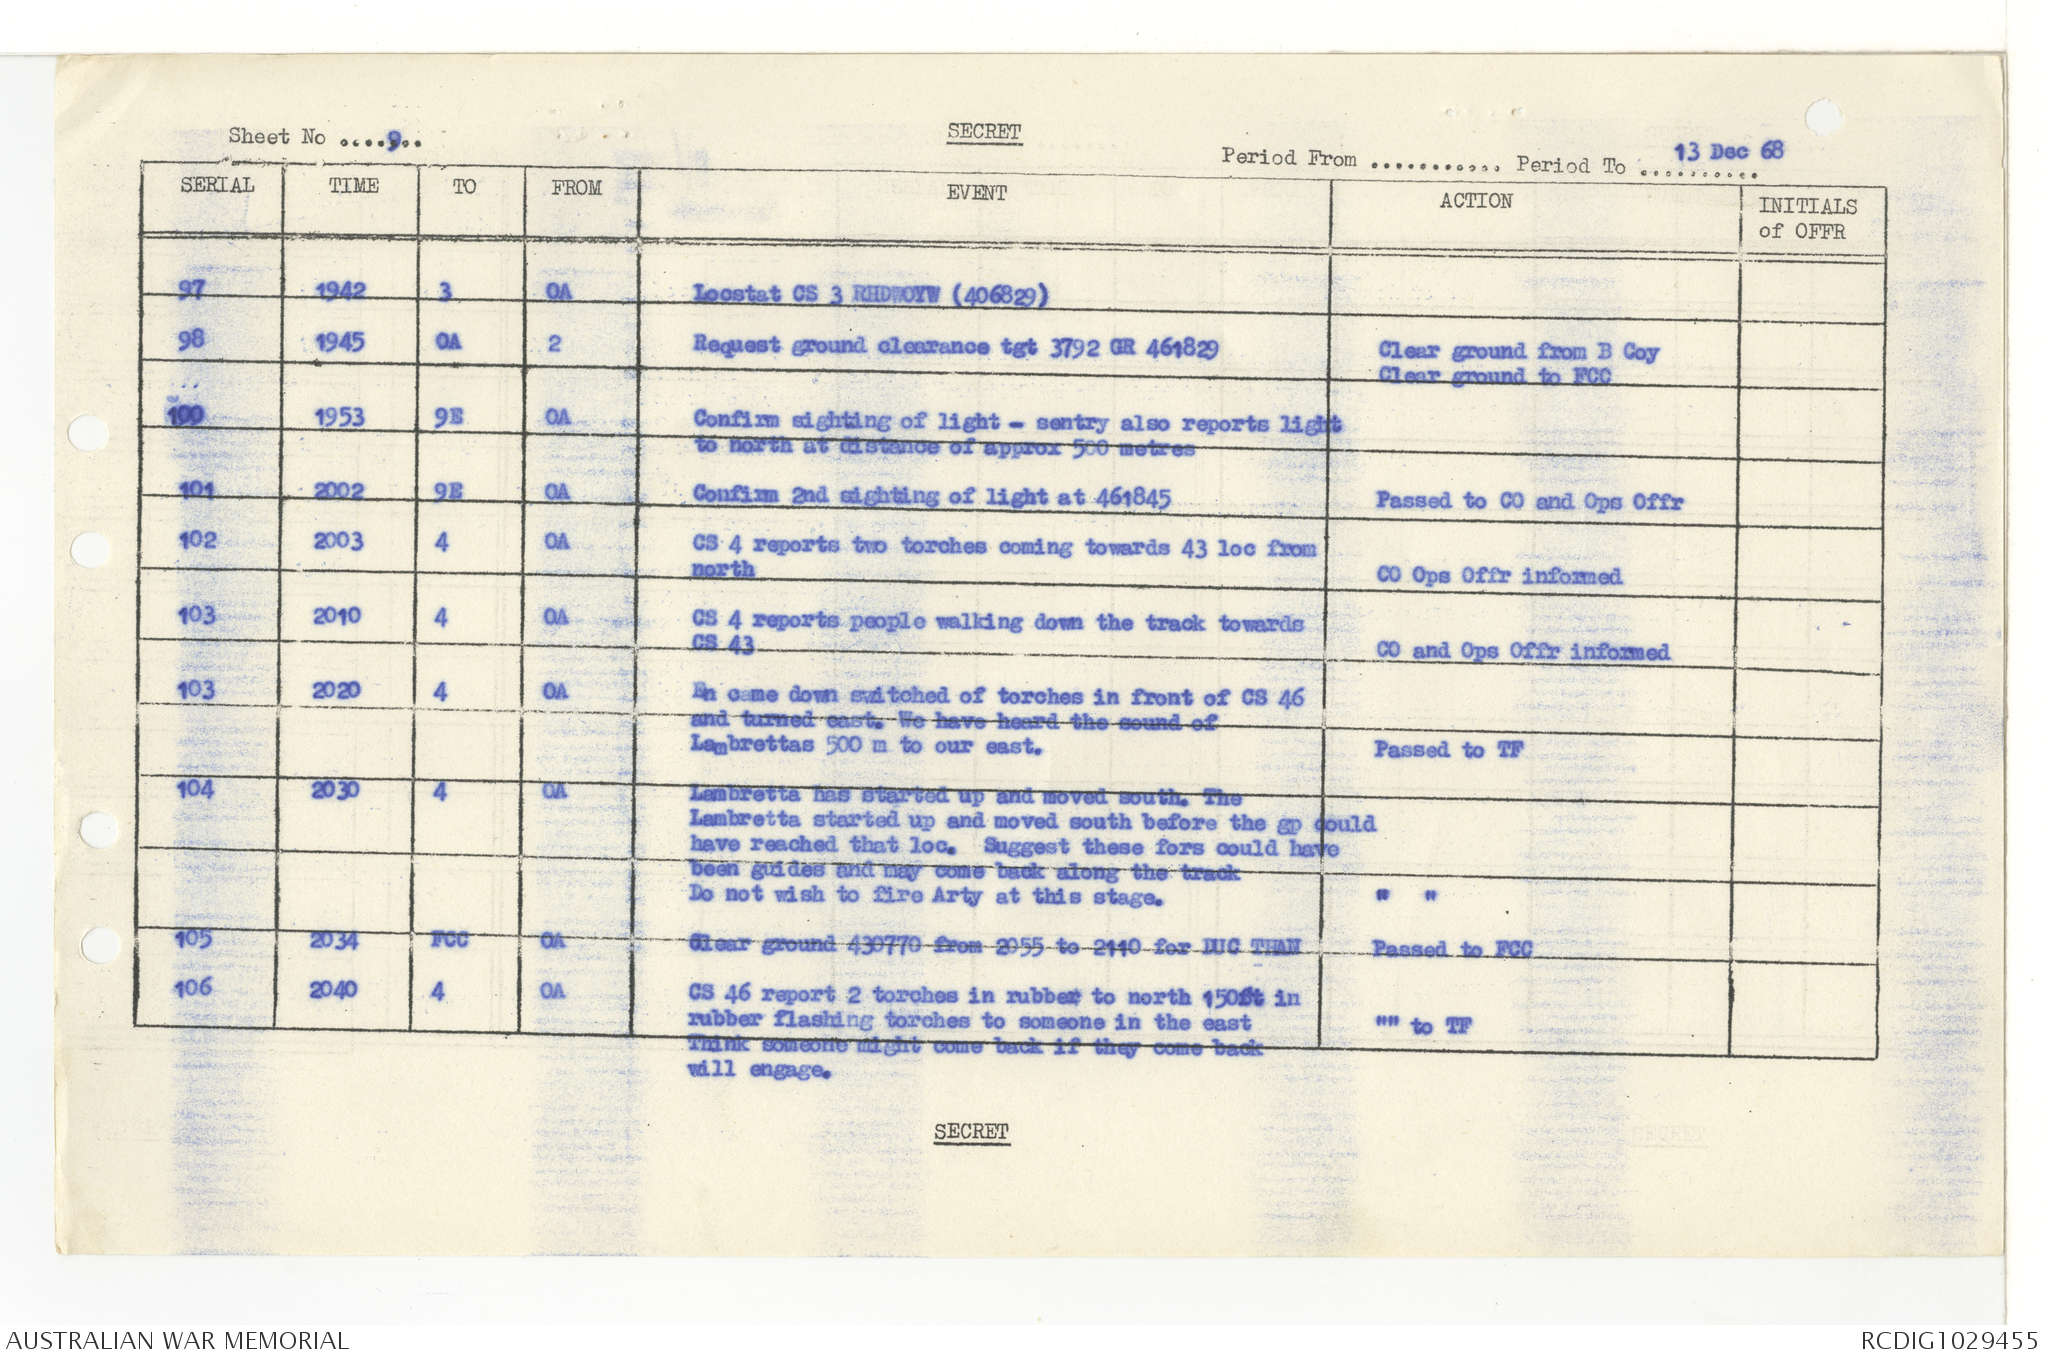 Sheet No ....9..
SECRET
Period From ........... Period To 13 Dec 68
SERIAL TIME TO FROM EVENT ACTION INITIALS of OFFR
97 1942 3 OA Locstat CS 3 RHDWOYW (406829)
98 1945 OA 2 Request ground clearance tgt 3792 GR 461829 Clear ground from B Coy
Clear ground to FCC
100 1953 9E OA Confirm sighting of light - sentry also reports light
to north at distance of approx 500 metres
101 2002 9E OA Confirm 2nd sighting of light at 461845 Passed to CO and Ops Offr
102 2003 4 OA CS 4 reports two torches coming towards 43 loc from
north CO Ops Offr informed
103 2010 4 OA CS 4 reports people walking down the track towards
CS 43 CO and Ops Offr informed
103 2020 4 OA En came down switched of torches in front of CS 46
and turned east. We have heard the sound of
Lambrettas 500 m to our east. Passed to TF
104 2030 4 OA Lambretta has started up and moved south. The
Lambretta started up and moved south before the gp could
have reached that loc. Suggest these fors could have
been guides and may come back along the track
Do not wish to fire Arty at this stage. " "
105 2034 FCC OA Clear ground 430770 from 2055 to 2110 for DUC THAN Passed to FCC
106 2040 4 OA CS 46 report 2 torches in rubber to north 150ft in
rubber flashing torches to someone in the east "" to TF
Think someone might come back if they come back
will engage.
SECRET
AUSTRALIAN WAR MEMORIAL RCDIG1029455